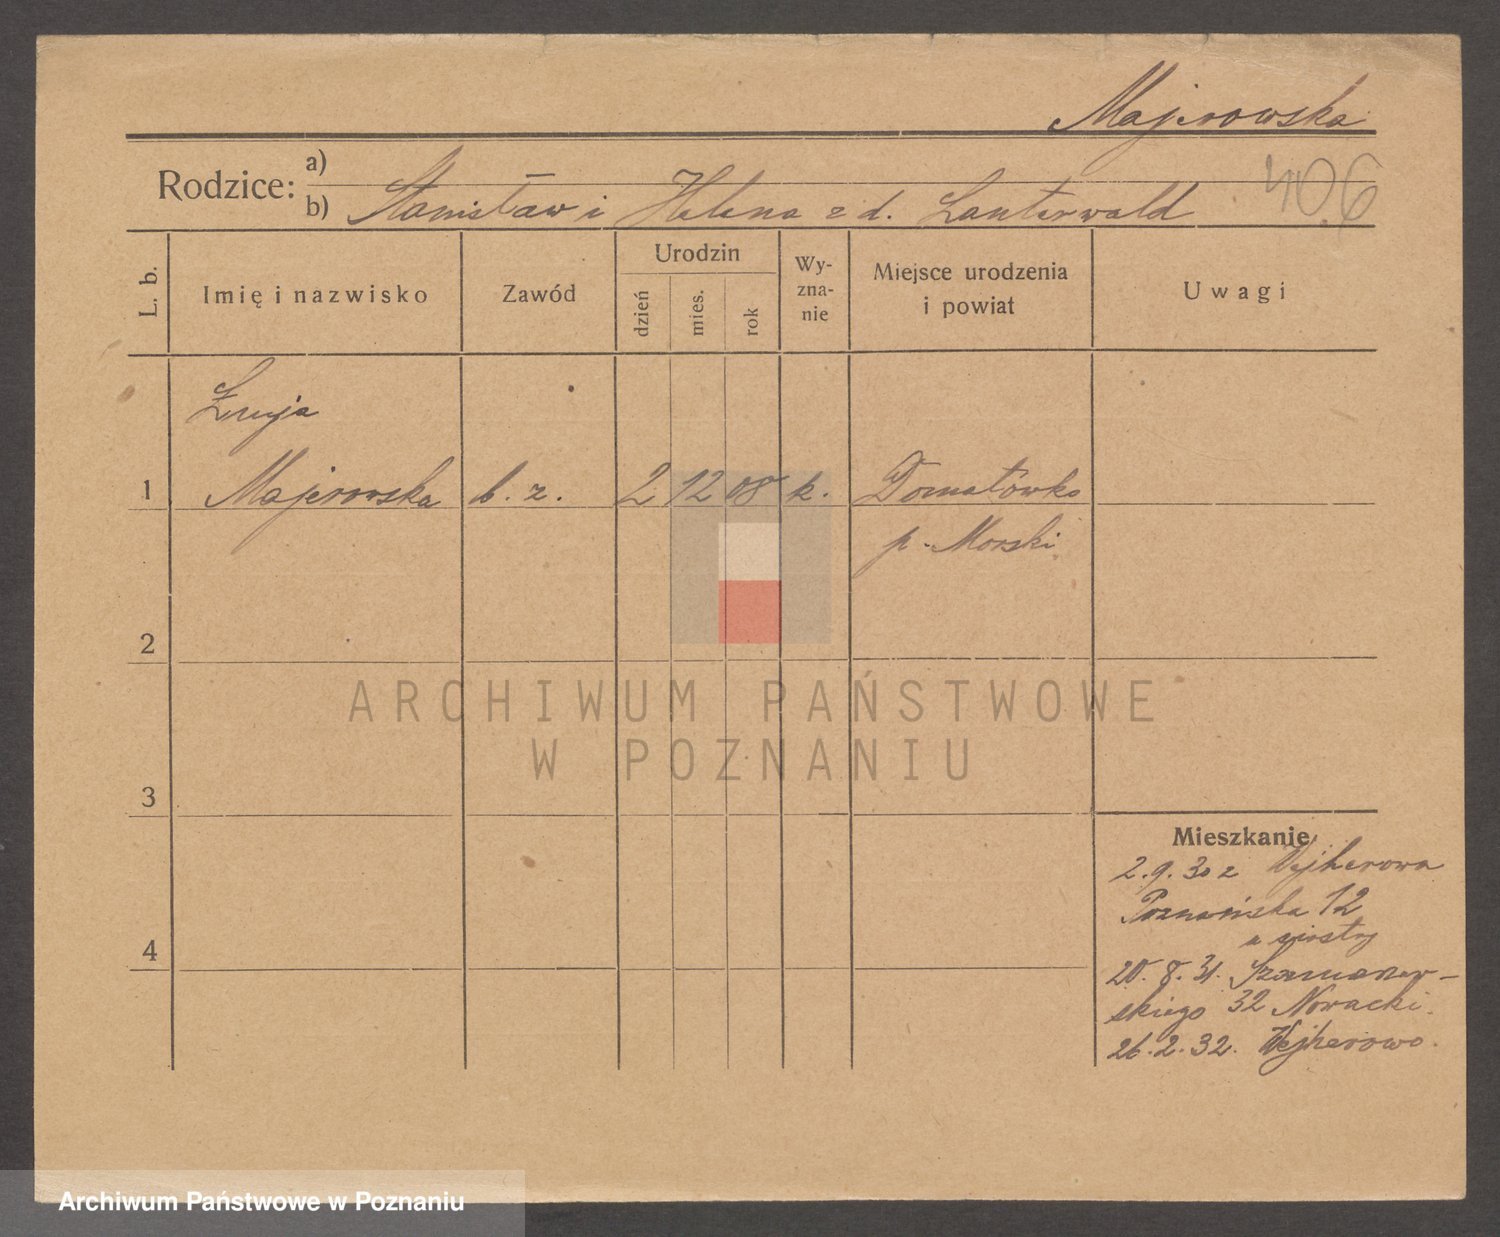 Majerowska
406
Rodzice:
a)
b) Stanisław i Helena z d. Lauterwald
L. b.
Imię i nazwisko
Zawód
Urodzin
dzień
mies.
rok
Wy-
zna-
nie
Miejsce urodzenia
i powiat
Uwagi
Łucja
1 Majerowska b. z. 2 12 08 k. Domatówko
p. Morski
2
3
4
Mieszkanie
2.9.30 z Wejherowa
Poznańska 12
u siostry
20.8.31. Szamarzew-
skiego 32 Nowacki.
26.2.32. Wejherowo.
ARCHIWUM PAŃSTWOWE
W POZNANIU
Archiwum Państwowe w Poznaniu